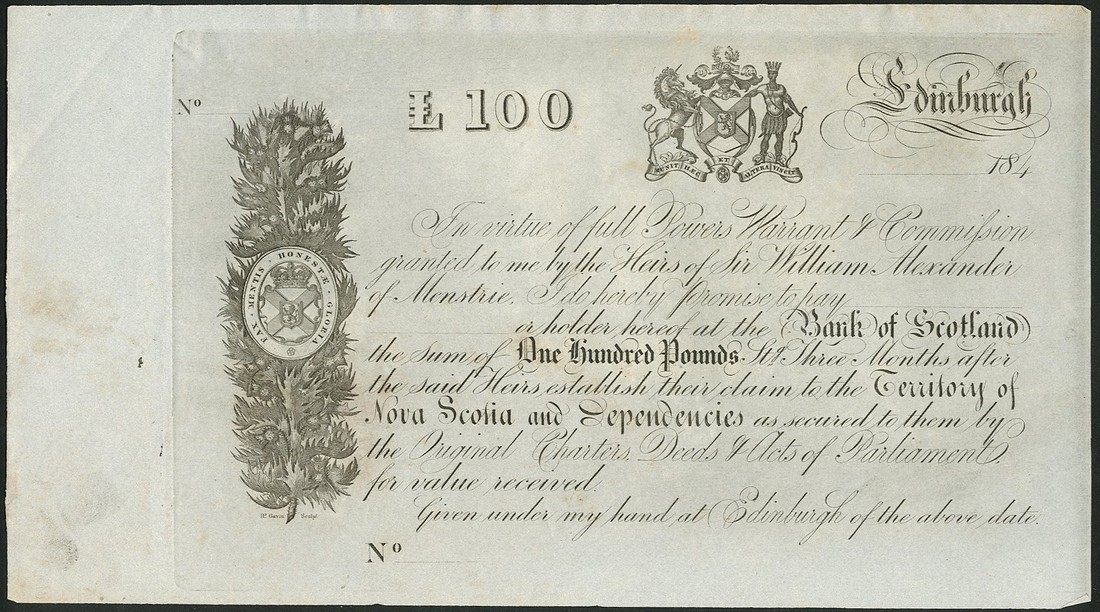 Nº
Ł 100
MUNIT HÆC ET ALTERA VINCIT
Edinburgh
184
FAX · MENTIS · HONESTÆ · GLORIA
In virtue of full Powers Warrant & Commission
granted to me by the Heirs of Sir William Alexander
of Menstrie. I do hereby promise to pay
or holder hereof at the Bank of Scotland
the Sum of One Hundred Pounds Stg. Three Months after
the said Heirs establish their claim to the Territory of
Nova Scotia and Dependencies as secured to them by
the Original Charters, Deeds & Acts of Parliament,
for value received.
Given under my hand at Edinburgh of the above date.
Sculpt
Nº